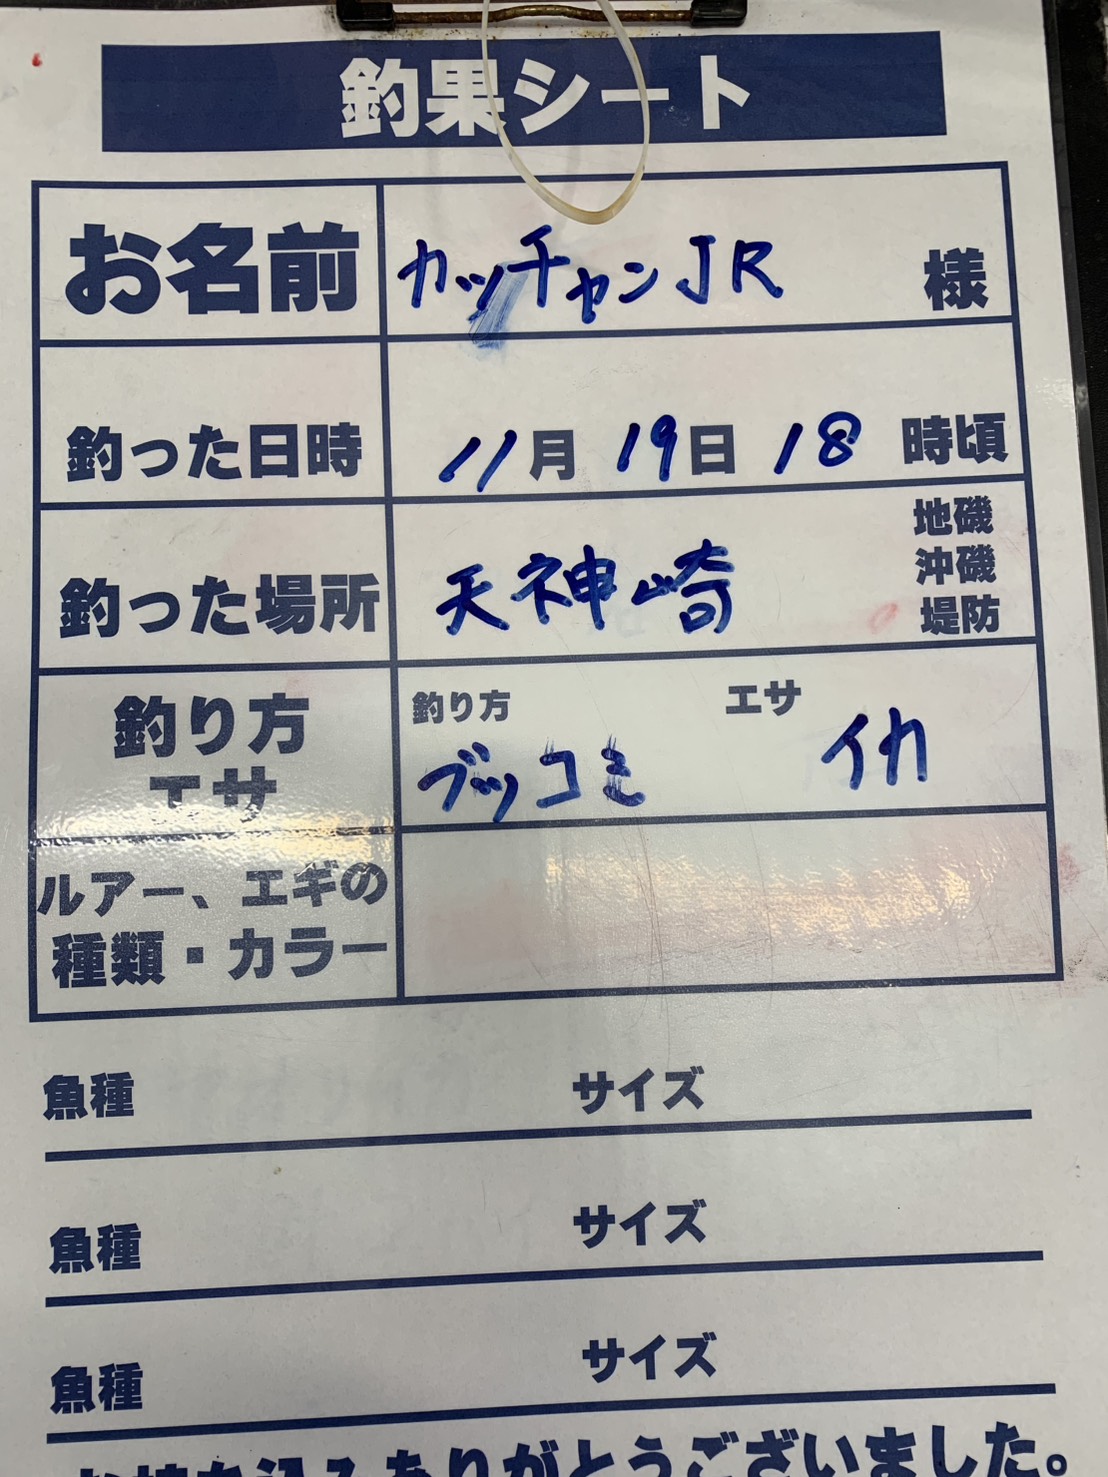 釣果シート
お名前 カッチャンJR 様
釣った日時 11月 19日 18 時頃
釣った場所 天神崎 地磯 沖磯 堤防
釣り方 エサ
釣り方 エサ
ブッコミ イカ
ルアー、エギの
種類・カラー
魚種 サイズ
魚種 サイズ
魚種 サイズ
お持ち込みありがとうございました。